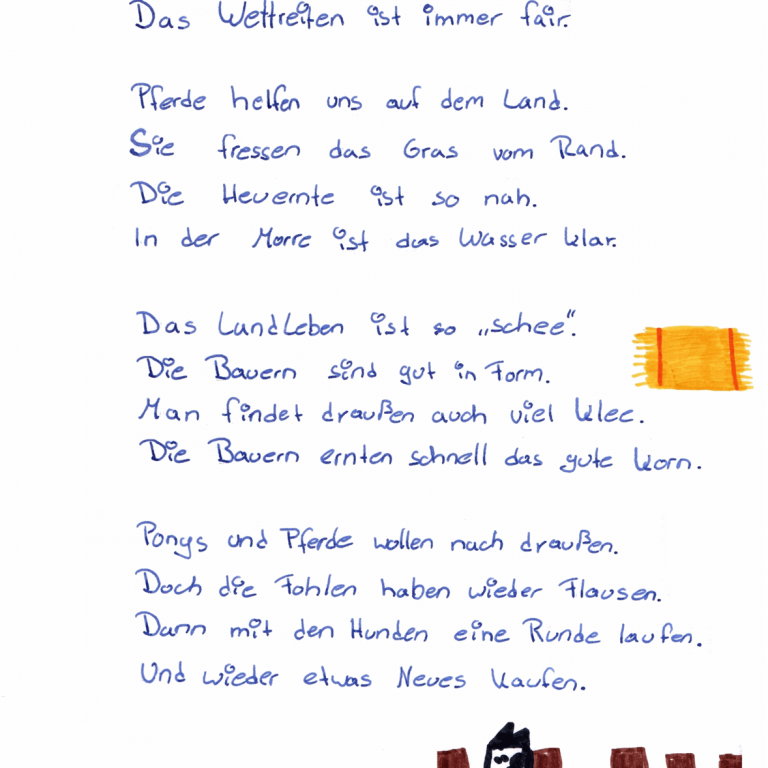 Das Wettreiten ist immer fair.
Pferde helfen uns auf dem Land.
Sie fressen das Gras vom Rand.
Die Heuernte ist so nah.
In der Morre ist das Wasser klar.
Das Landleben ist so „schee“.
Die Bauern sind gut in Form.
Man findet draußen auch viel Klee.
Die Bauern ernten schnell das gute Korn.
Ponys und Pferde wollen nach draußen.
Doch die Fohlen haben wieder Flausen.
Dann mit den Hunden eine Runde laufen.
Und wieder etwas Neues kaufen.